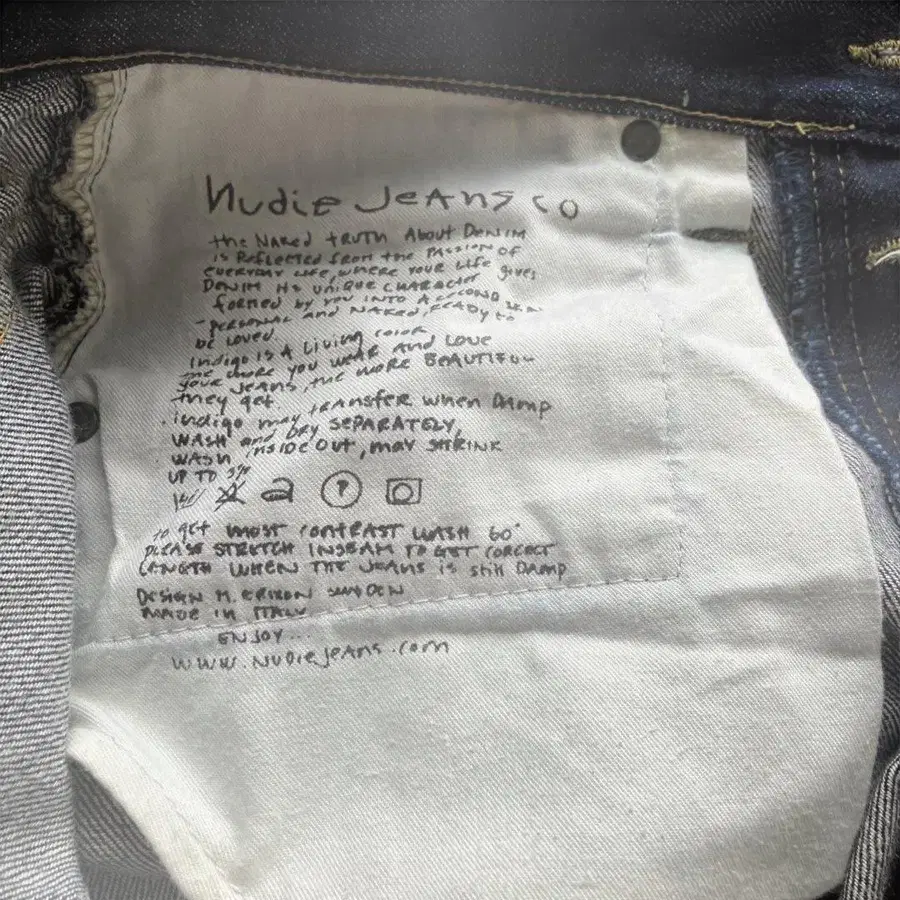 Nudie Jeans co
the Naked truth About Denim
is Reflected from the Passion of
everyday life, where your life gives
Denim its unique character
formed by you into a second skin
- personal and naked, ready to
be loved.
Indigo is a living color
the more you wear and love
your jeans, the more beautiful
they get.
. indigo may transfer when damp
wash and dry separately,
. wash inside out, may shrink
up to 3%
?
to get most contrast wash 60°
please stretch inseam to get correct
length when the jeans is still damp
Design M. Erixon Sweden
made in Italy
enjoy...
www.nudiejeans.com